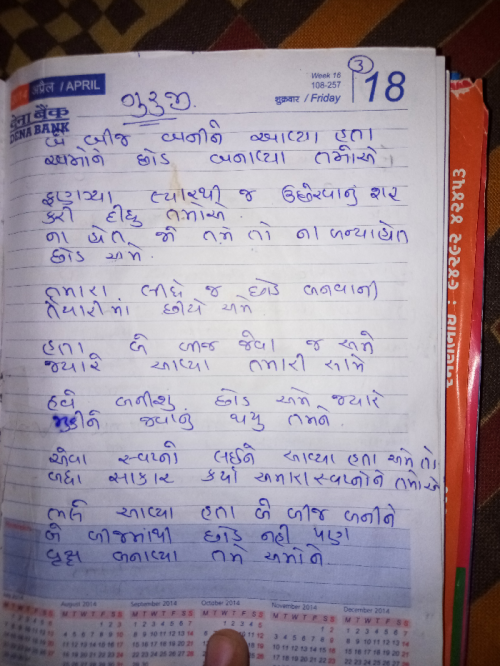 अप्रैल / APRIL
Week 16
108-257
3
शुक्रवार / Friday
18
देना बैंक
DENA BANK
ગુરુજી.
બે બીજ બનીને આવ્યા હતા
અમોને છોડ બનાવ્યા તમોએ.
ફણગ્યા ત્યારથી જ ઉછેરવાનું શરૂ
કરી દીધુ તમોએ.
ના હોત જો તમે તો ના બન્યા હોત
છોડ અમે.
તમારા લીધે જ છોડ બનવાની
તૈયારીમાં છીએ અમે.
હતા બે બીજ જેવા જ અમે
જ્યારે આવ્યા તમારી સામે
હવે બનીશુ છોડ અમે જ્યારે
મુકીને જવાનું થયુ તમને.
એવા સ્વપ્નો લઈને આવ્યા હતા અમે તો
બધા સાકાર કર્યા અમારા સ્વપ્નોને તમોએ
ભલે આવ્યા હતા બે બીજ બનીને
બે બીજમાંથી છોડ નહી પણ
વૃક્ષ બનાવ્યા તમે અમોને.
August 2014 September 2014 October 2014 November 2014 December 2014